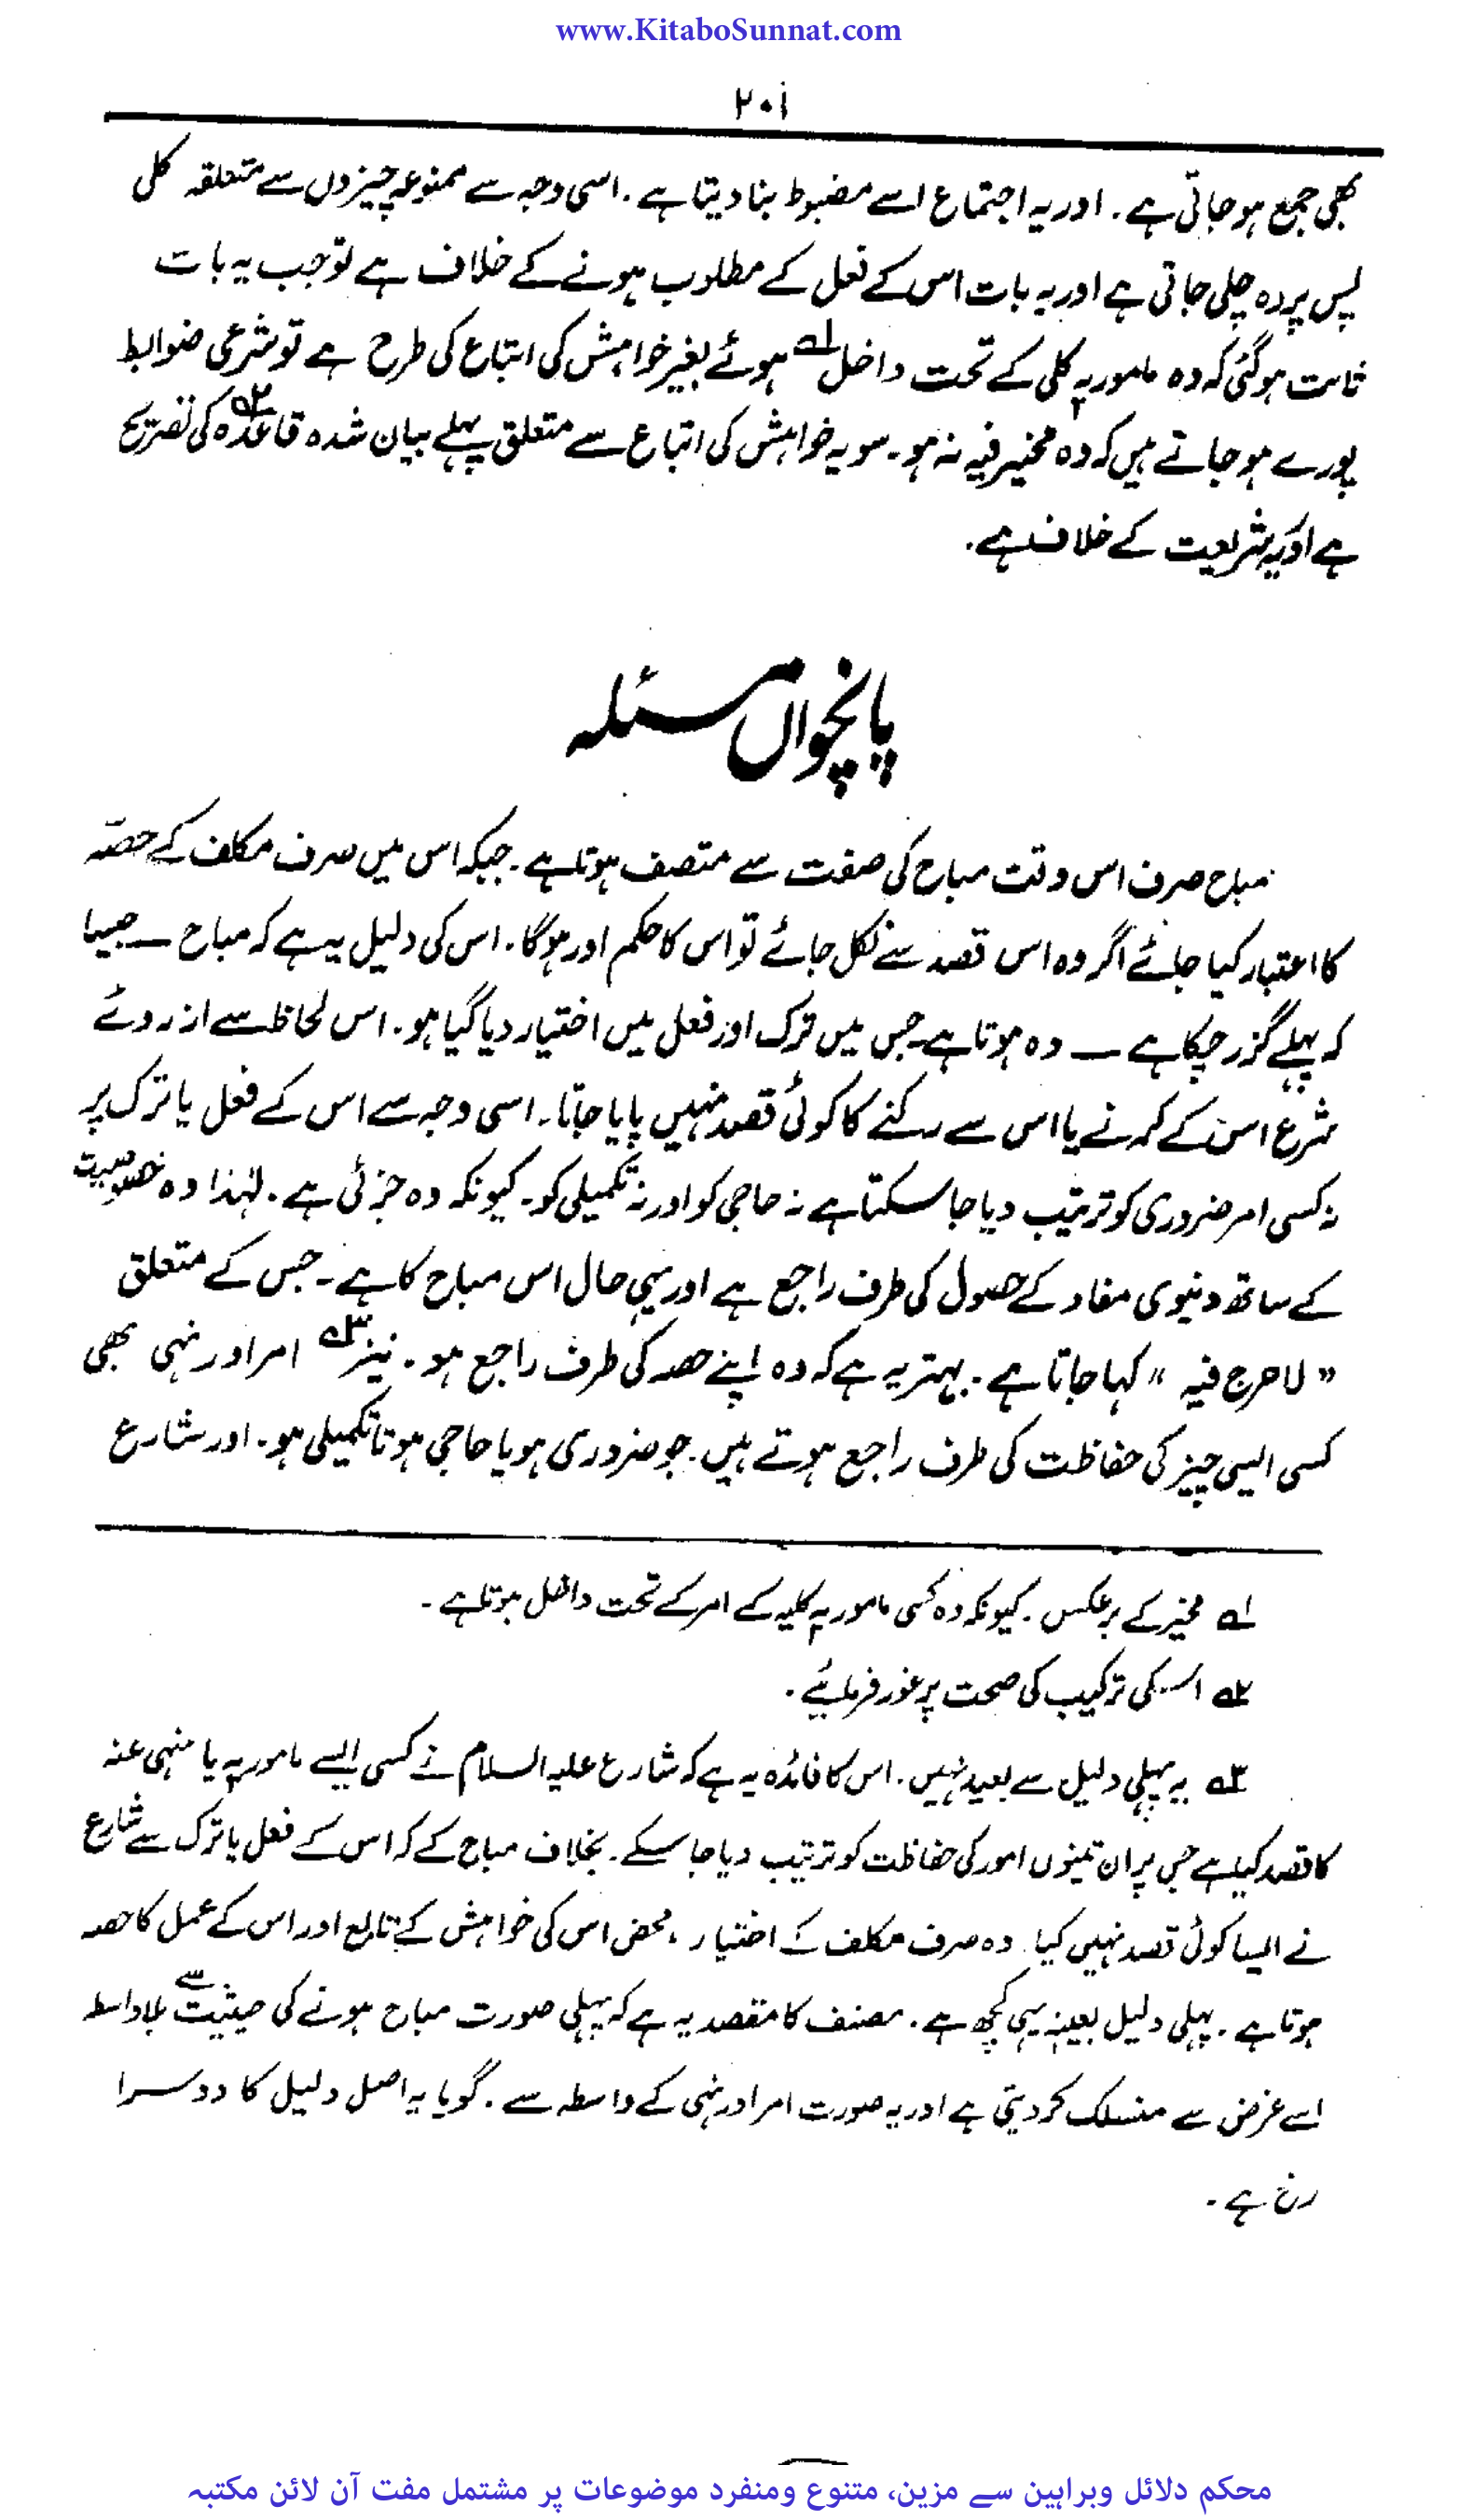 www.KitaboSunnat.com
۲۰۱
بھی جمع ہو جاتی ہے۔ اور یہ اجتماع اسے مضبوط بنا دیتا ہے۔ اسی وجہ سے ممنوعہ چیزوں سے متعلقہ کلی
پس پردہ چلی جاتی ہے اور یہ بات اس کے فعل کے مطلوب ہونے کے خلاف ہے تو جب یہ بات
ثابت ہو گئی کہ وہ مامور بہ کلی کے تحت داخل ۱ہ ہوئے بغیر خواہش کی اتباع کی طرح ہے تو شرعی ضوابط
پورے ہو جاتے ہیں کہ وہ مخیر فیہ نہ ہو۔ سو یہ خواہش کی اتباع سے متعلق پہلے بیان شدہ قاعدہ ۲ہ کی تصریح
ہے اور یہ شریعت کے خلاف ہے۔
پانچواں مسئلہ
مباح صرف اس وقت مباح کی صفت سے متصف ہوتا ہے۔ جبکہ اس میں صرف مکلف کے حصّہ
کا اعتبار کیا جائے اگر وہ اس قصد سے نکل جائے تو اس کا حکم اور ہو گا۔ اس کی دلیل یہ ہے کہ مباح ــ جیسا
کہ پہلے گزر چکا ہے ــ وہ ہوتا ہے جس میں ترک اور فعل میں اختیار دیا گیا ہو۔ اس لحاظ سے از روئے
شرع اس کے کرنے یا اس سے رکنے کا کوئی قصد نہیں پایا جاتا۔ اسی وجہ سے اس کے فعل یا ترک پر
نہ کسی امر ضروری کو ترتیب دیا جا سکتا ہے نہ حاجی کو اور نہ تکمیلی کو۔ کیونکہ وہ جزئی ہے۔ لہٰذا وہ خصوصیت
کے ساتھ دنیوی مفاد کے حصول کی طرف راجع ہے اور یہی حال اس مباح کا ہے۔ جس کے متعلق
”لا حرج فیہ“ کہا جاتا ہے۔ بہتر یہ ہے کہ وہ اپنے حصہ کی طرف راجع ہو۔ نیز ۳ہ امر اور نہی بھی
کسی ایسی چیز کی حفاظت کی طرف راجع ہوتے ہیں۔ جو ضروری ہو یا حاجی ہو تا تکمیلی ہو۔ اور شارع
۱ہ مخیّر کے برعکس۔ کیونکہ وہ کسی مامور بہ کلیہ کے امر کے تحت داخل ہوتا ہے۔
۲ہ اسکی ترکیب کی صحت پر غور فرمایئے۔
۳ہ یہ پہلی دلیل سے بعید نہیں۔ اس کا فائدہ یہ ہے کہ شارع علیہ السلام نے کسی ایسے مامور بہ یا منہی عنہ
کا قصد کیا ہے جس پر ان تینوں امور کی حفاظت کو ترتیب دیا جا سکے۔ بخلاف مباح کے کہ اس کے فعل یا ترک سے شارع
نے ایسا کوئی قصد نہیں کیا۔ وہ صرف مکلف کے اختیار، محض اس کی خواہش کے تابع اور اس کے عمل کا حصہ
ہوتا ہے۔ پہلی دلیل بعینہٖ یہی کچھ ہے۔ مصنف کا مقصد یہ ہے کہ پہلی صورت مباح ہونے کی حیثیت سے بلا واسطہ
اسے غرض سے منسلک کر دیتی ہے اور یہ صورت امر اور نہی کے واسطہ سے۔ گویا یہ اصل دلیل کا دوسرا
رخ ہے۔
محکم دلائل وبراہین سے مزین، متنوع ومنفرد موضوعات پر مشتمل مفت آن لائن مکتبہ